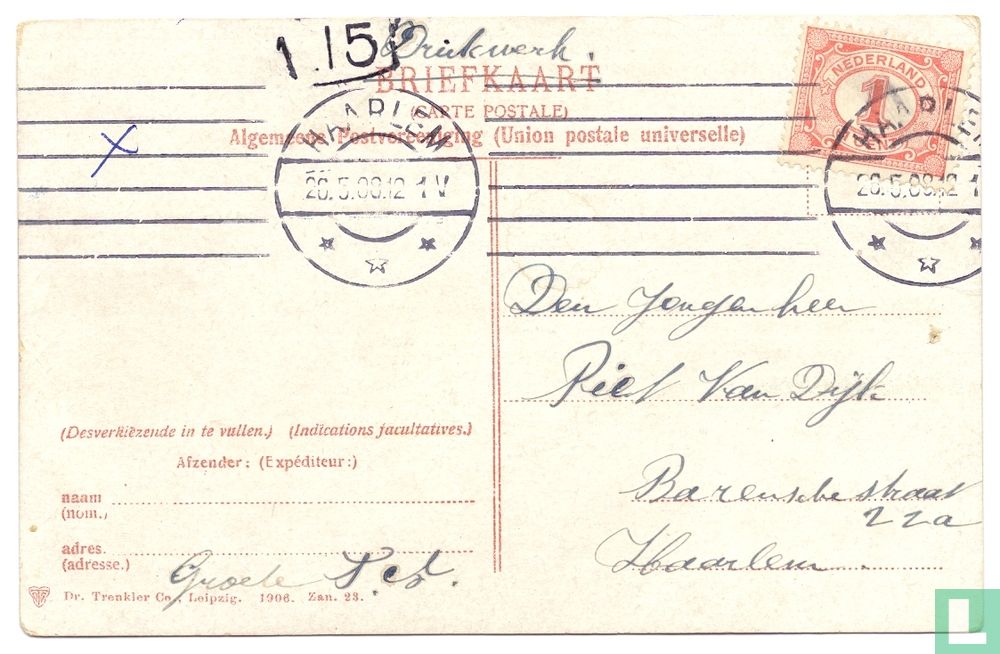 1.15
Drukwerk.
BRIEFKAART
(CARTE POSTALE)
Algemeene Postvereeniging (Union postale universelle)
NEDERLAND
1
HAARLEM
26.5.08.12 1V
HAARL
26.5.08.12 1
Den Jongenheer
Piet Van Dijk
Barensche straat
22a
Haarlem
(Desverkiezende in te vullen.) (Indications facultatives.)
Afzender: (Expéditeur:)
naam
(nom.)
adres.
(adresse.)
Groete
Dr. Trenkler Co., Leipzig. 1906. Zan. 23.
L